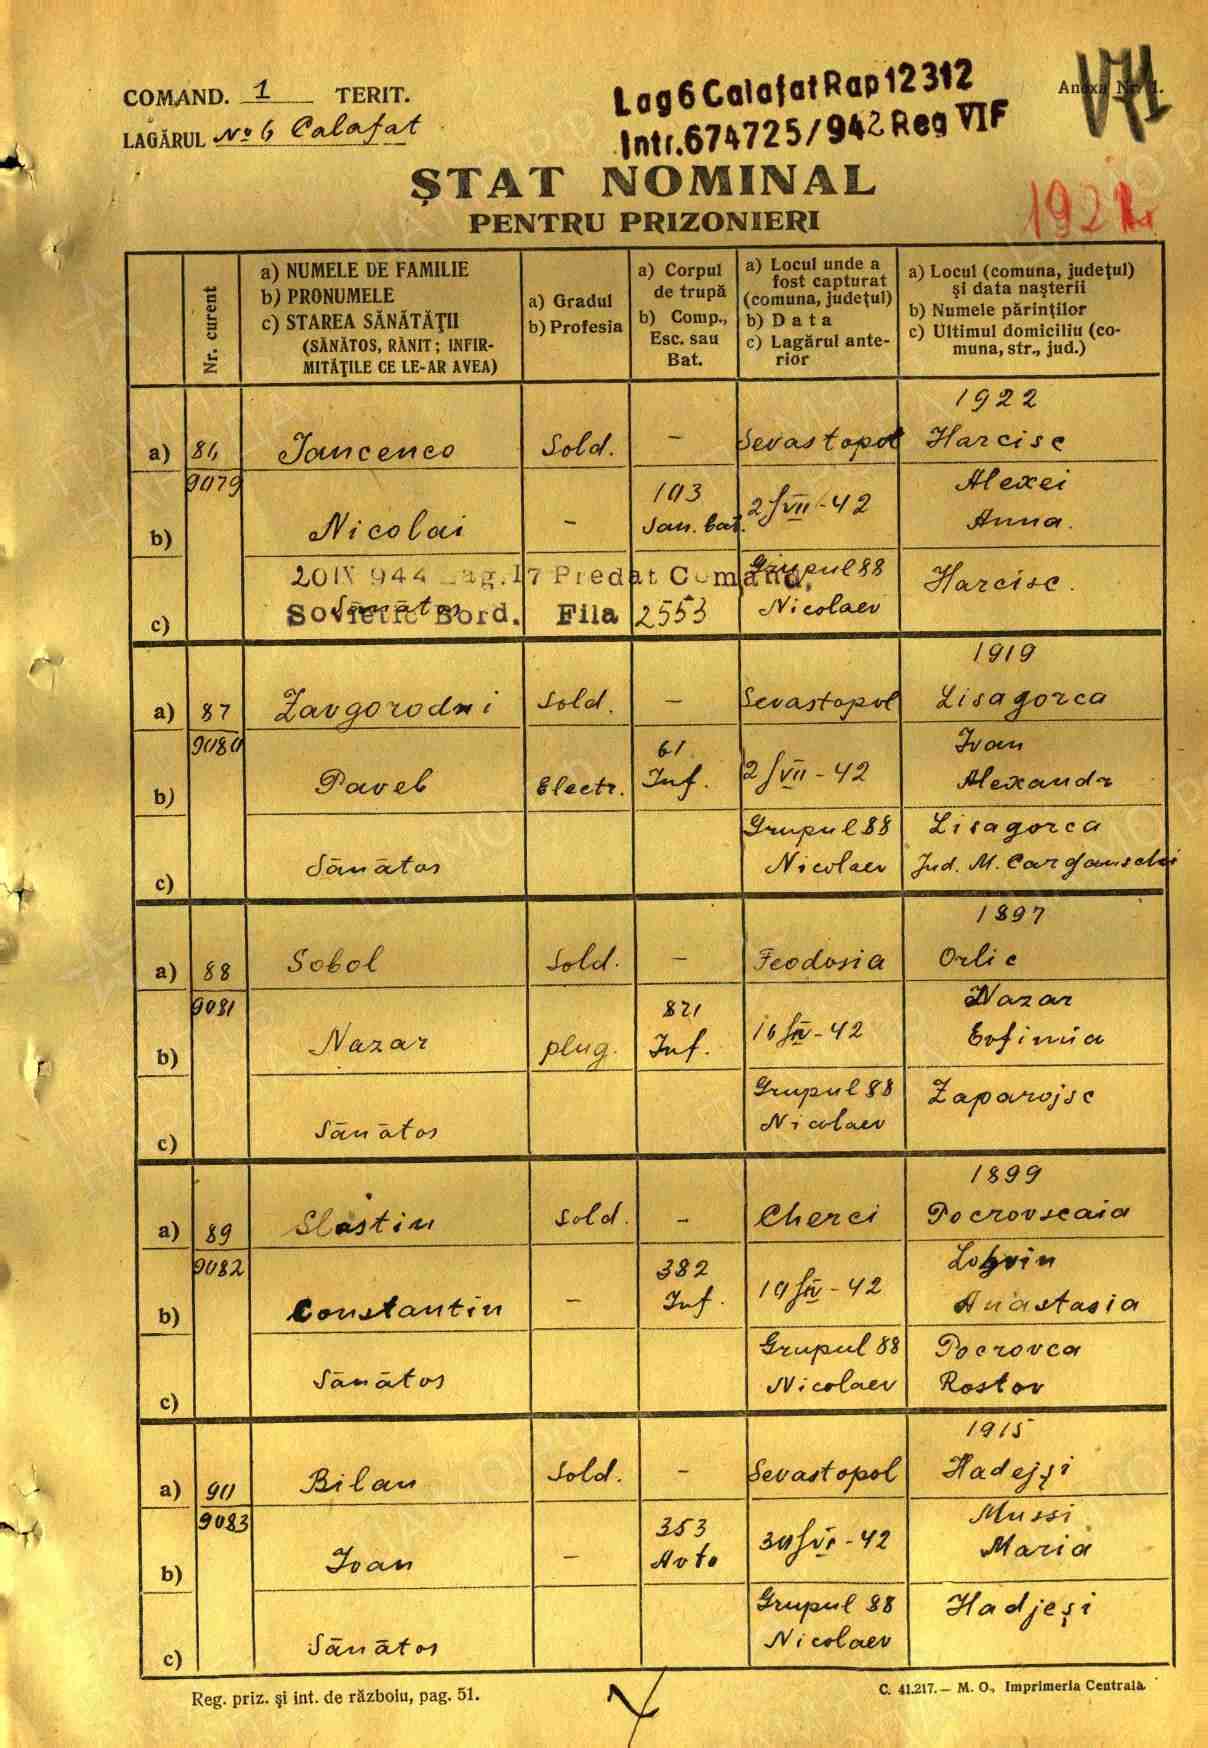 COMAND. 1 TERIT.
LAGĂRUL No 6 Calafat
Lag 6 Calafat Rap 12312
Intr. 674725/942 Reg VIF
Anexa Nr. 1.
VII
ŞTAT NOMINAL
PENTRU PRIZONIERI
192
Nr. curent
a) NUMELE DE FAMILIE
b) PRONUMELE
c) STAREA SĂNĂTĂŢII
(SĂNĂTOS, RĂNIT; INFIR-
MITĂŢILE CE LE-AR AVEA)
a) Gradul
b) Profesia
a) Corpul
de trupă
b) Comp.,
Esc. sau
Bat.
a) Locul unde a
fost capturat
(comuna, judeţul)
b) Data
c) Lagărul ante-
rior
a) Locul (comuna, judeţul)
şi data naşterii
b) Numele părinţilor
c) Ultimul domiciliu (co-
muna, str., jud.)
1922
a) 86 Iancenco Sold. – Sevastopol Harcisc
9079 Alexei
b) Nicolai – 103 San. bat. 2/VII-42 Anna.
20 IX 944 Lag. 17 Predat Comand.
Grupul 88 Harcisc.
c) Sănătos Nicolaev
Sovietic Bord. Fila 2553
1919
a) 87 Zavgorodni Sold. – Sevastopol Lisagorca
9080 61 Ivan
b) Pavel Electr. Inf. 2/VII-42 Alexandr
Grupul 88 Lisagorca
c) Sănătos Nicolaev Jud. M.
1897
a) 88 Sobol Sold. – Feodosia Orlic
9081 821 Nazar
b) Nazar plug. Inf. 16/IV-42 Evfimia
Grupul 88 Zaparojsc
c) Sănătos Nicolaev
1899
a) 89 Slastin Sold. – Cherci Pocrovscaia
9082 382
b) Constantin – Inf. 10/IV-42 Anastasia
Grupul 88 Pocrovca
c) Sănătos Nicolaev Rostov
1915
a) 90 Bilan Sold. – Sevastopol Hadejşi
9083 353 Mussi
b) Ivan – Avto 30/VI-42 Maria
Grupul 88 Hadjeşi
c) Sănătos Nicolaev
Reg. priz. şi int. de războiu, pag. 51.
C. 41.217.— M. O., Imprimeria Centrală.